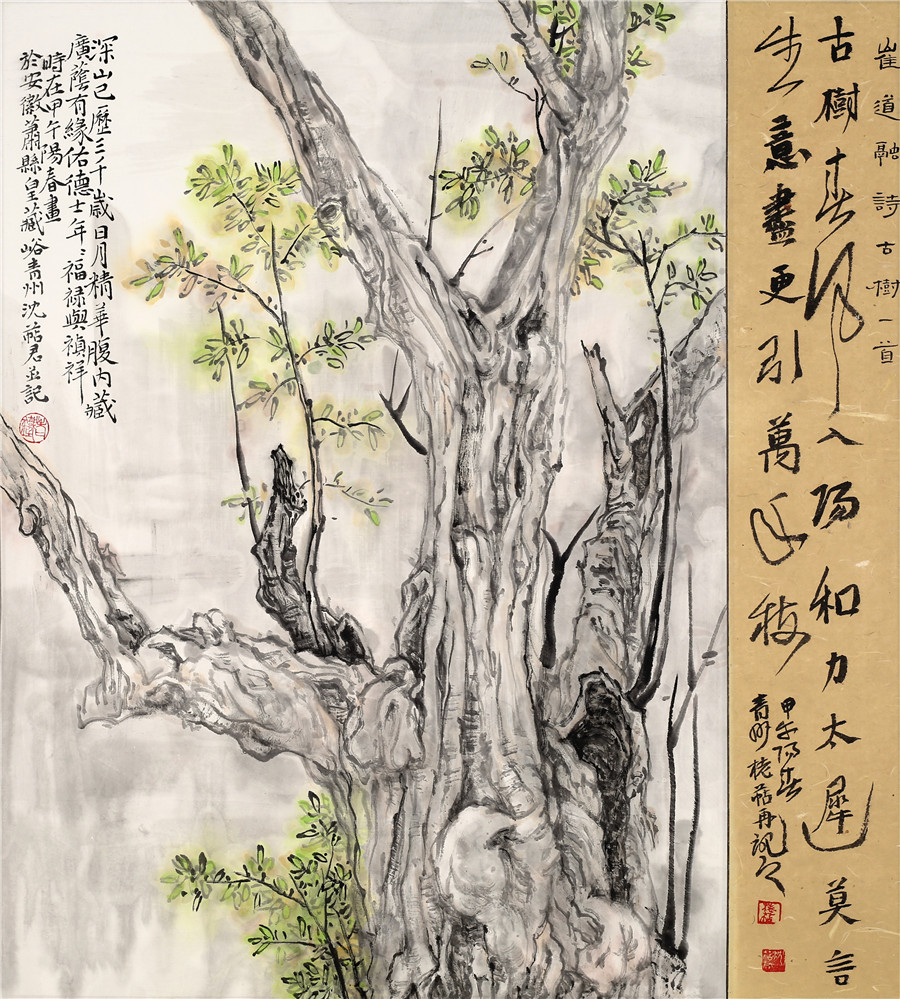 崔道融詩古樹一首
古樹春風入陽和力太遲莫言
生意盡更引萬年枝
甲午陽春
青州再記
深山已歷三千歲日月精華腹內藏
廣蔭有緣佑德士年〻福祿與禎祥
時在甲午陽春畫
於安徽蕭縣皇藏峪青州沈君並記